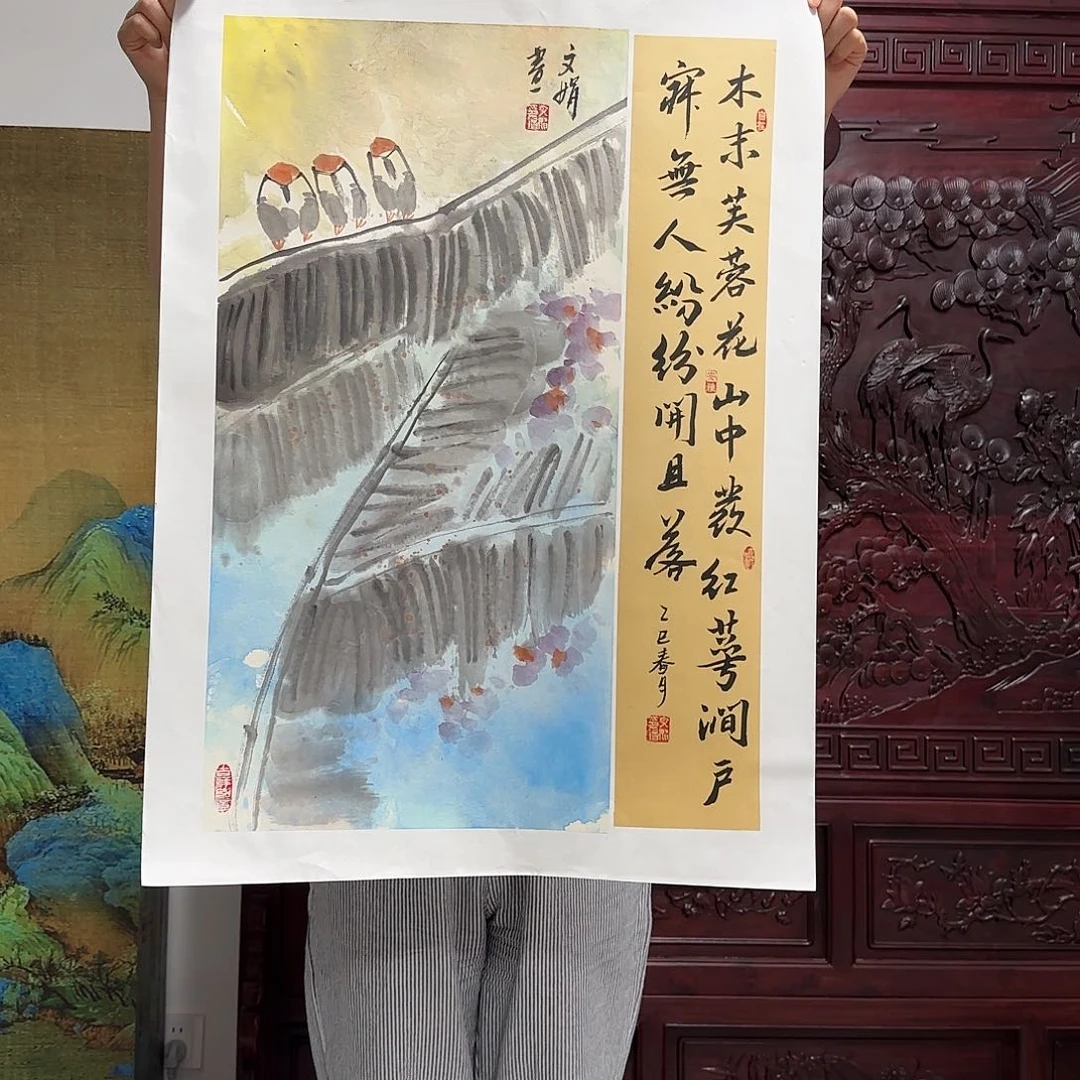 木末芙蓉花山中發红萼澗戸
寂無人紛纷開且落
乙巳春月
文娟
畫